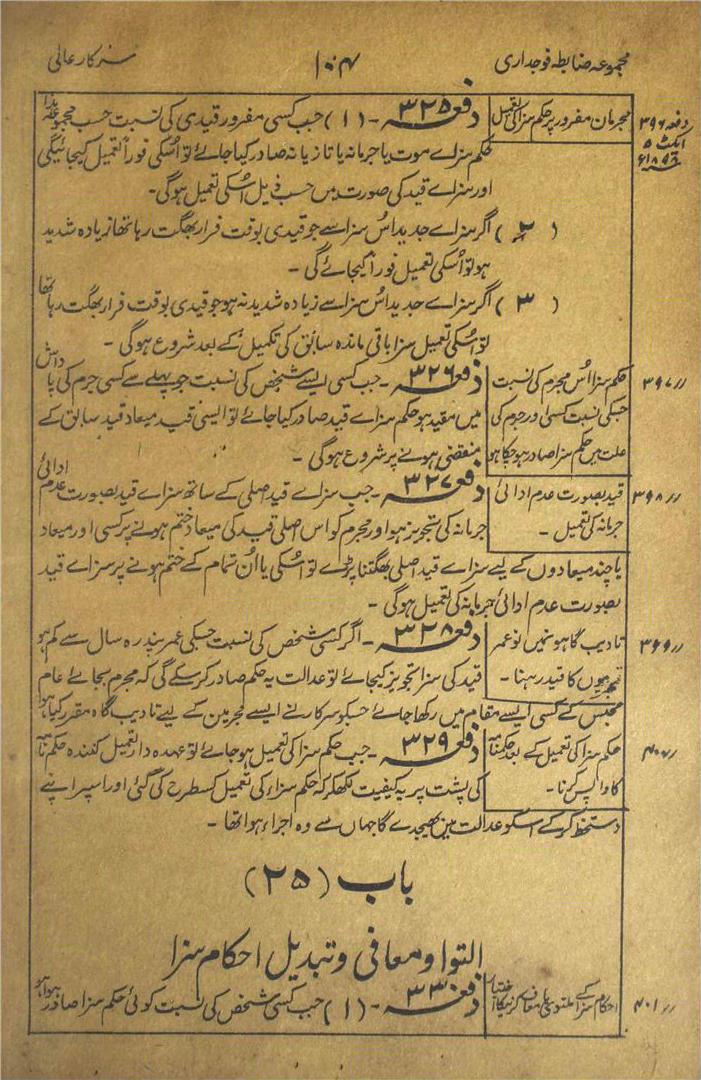 مجموعہ ضابطہ فوجداری ۱۰۴ سرکار عالی
دفعہ ۳۹۶ ایکٹ ۵ ۱۸۹۸ء
مجرمان مفرور پر حکم سزا کی تعمیل
دفعہ ۳۲۵ - (۱) جب کسی مفرور قیدی کی نسبت حسب مجموعہ ہذا
حکم سزاے موت یا جرمانہ یا تازیانہ صادر کیا جائے تو اُسکی فوراً تعمیل کیجائیگی
اور سزاے قید کی صورت میں حسب ذیل اسکی تعمیل ہوگی۔
(۲) اگر سزاے جدید اُس سزا سے جو قیدی بوقت فرار بھگت رہا تھا زیادہ شدید
ہو تو اُسکی تعمیل فوراً کیجائے گی -
(۳) اگر سزاے جدید اُس سزا سے زیادہ شدید نہ ہو جو قیدی بوقت فرار بھگت رہا تھا
تو اُسکی تعمیل سزا باقی ماندہ سابق کی تکمیل کے بعد شروع ہوگی -
〃 ۳۹۷
حکم سزا اُس مجرم کی نسبت
جسکی نسبت کسی اور جرم کی
علت میں حکم سزا صادر ہوچکا ہو
دفعہ ۳۲۶ - جب کسی ایسے شخص کی نسبت جو پہلے سے کسی جرم کی پاداش
میں مقید ہو حکم سزاے قید صادر کیا جائے تو ایسی قید میعاد قید سابق کے
منقضی ہونے پر شروع ہوگی -
〃 ۳۹۸
قید بصورت عدم ادائی
جرمانہ کی تعمیل -
دفعہ ۳۲۷ - جب سزاے قید اصلی کے ساتھ سزاے قید بصورت عدم ادائی
جرمانہ کی تجویز ہو اور مجرم کو اس اصلی قید کی میعاد ختم ہونے پر کسی اور میعاد
یا چند میعادوں کے لیے سزاے قید اصلی بھگتنا پڑے تو اُسکی یا اُن تمام کے ختم ہونے پر سزاے قید
بصورت عدم ادائی جرمانہ کی تعمیل ہوگی -
〃 ۳۹۹
تادیب گاہوں میں نوعمر
مجرموں کا قید رہنا -
دفعہ ۳۲۸ - اگر کسی شخص کی نسبت جسکی عمر پندرہ سال سے کم ہو
قید کی سزا تجویز کیجائے تو عدالت یہ حکم صادر کرسکے گی کہ مجرم بجائے عام
محبس کے کسی ایسے مقام میں رکھا جائے جسکو سرکار نے ایسے مجرمین کے لیے تادیب گاہ مقرر کیا ہو
〃 ۴۰۰
حکم سزا کی تعمیل کے بعد حکمنامہ
کا واپس کرنا -
دفعہ ۳۲۹ - جب حکم سزا کی تعمیل ہوجائے تو عہدہ دار تعمیل کنندہ حکم نامہ
کی پشت پر یہ کیفیت لکھکر کہ حکم سزا کی تعمیل کسطرح کی گئی اور اسپر اپنے
دستخط کرکے اسکو عدالت میں بھیجدے گا جہاں سے وہ اجراء ہوا تھا -
باب (۲۵)
التوا و معافی و تبدیل احکام سزا
〃 ۴۰۱
احکام سزا کے ملتوی یا معاف کرنیکا اختیار
دفعہ ۳۳۰ - (۱) جب کسی شخص کی نسبت کوئی حکم سزا صادر ہوا ہو